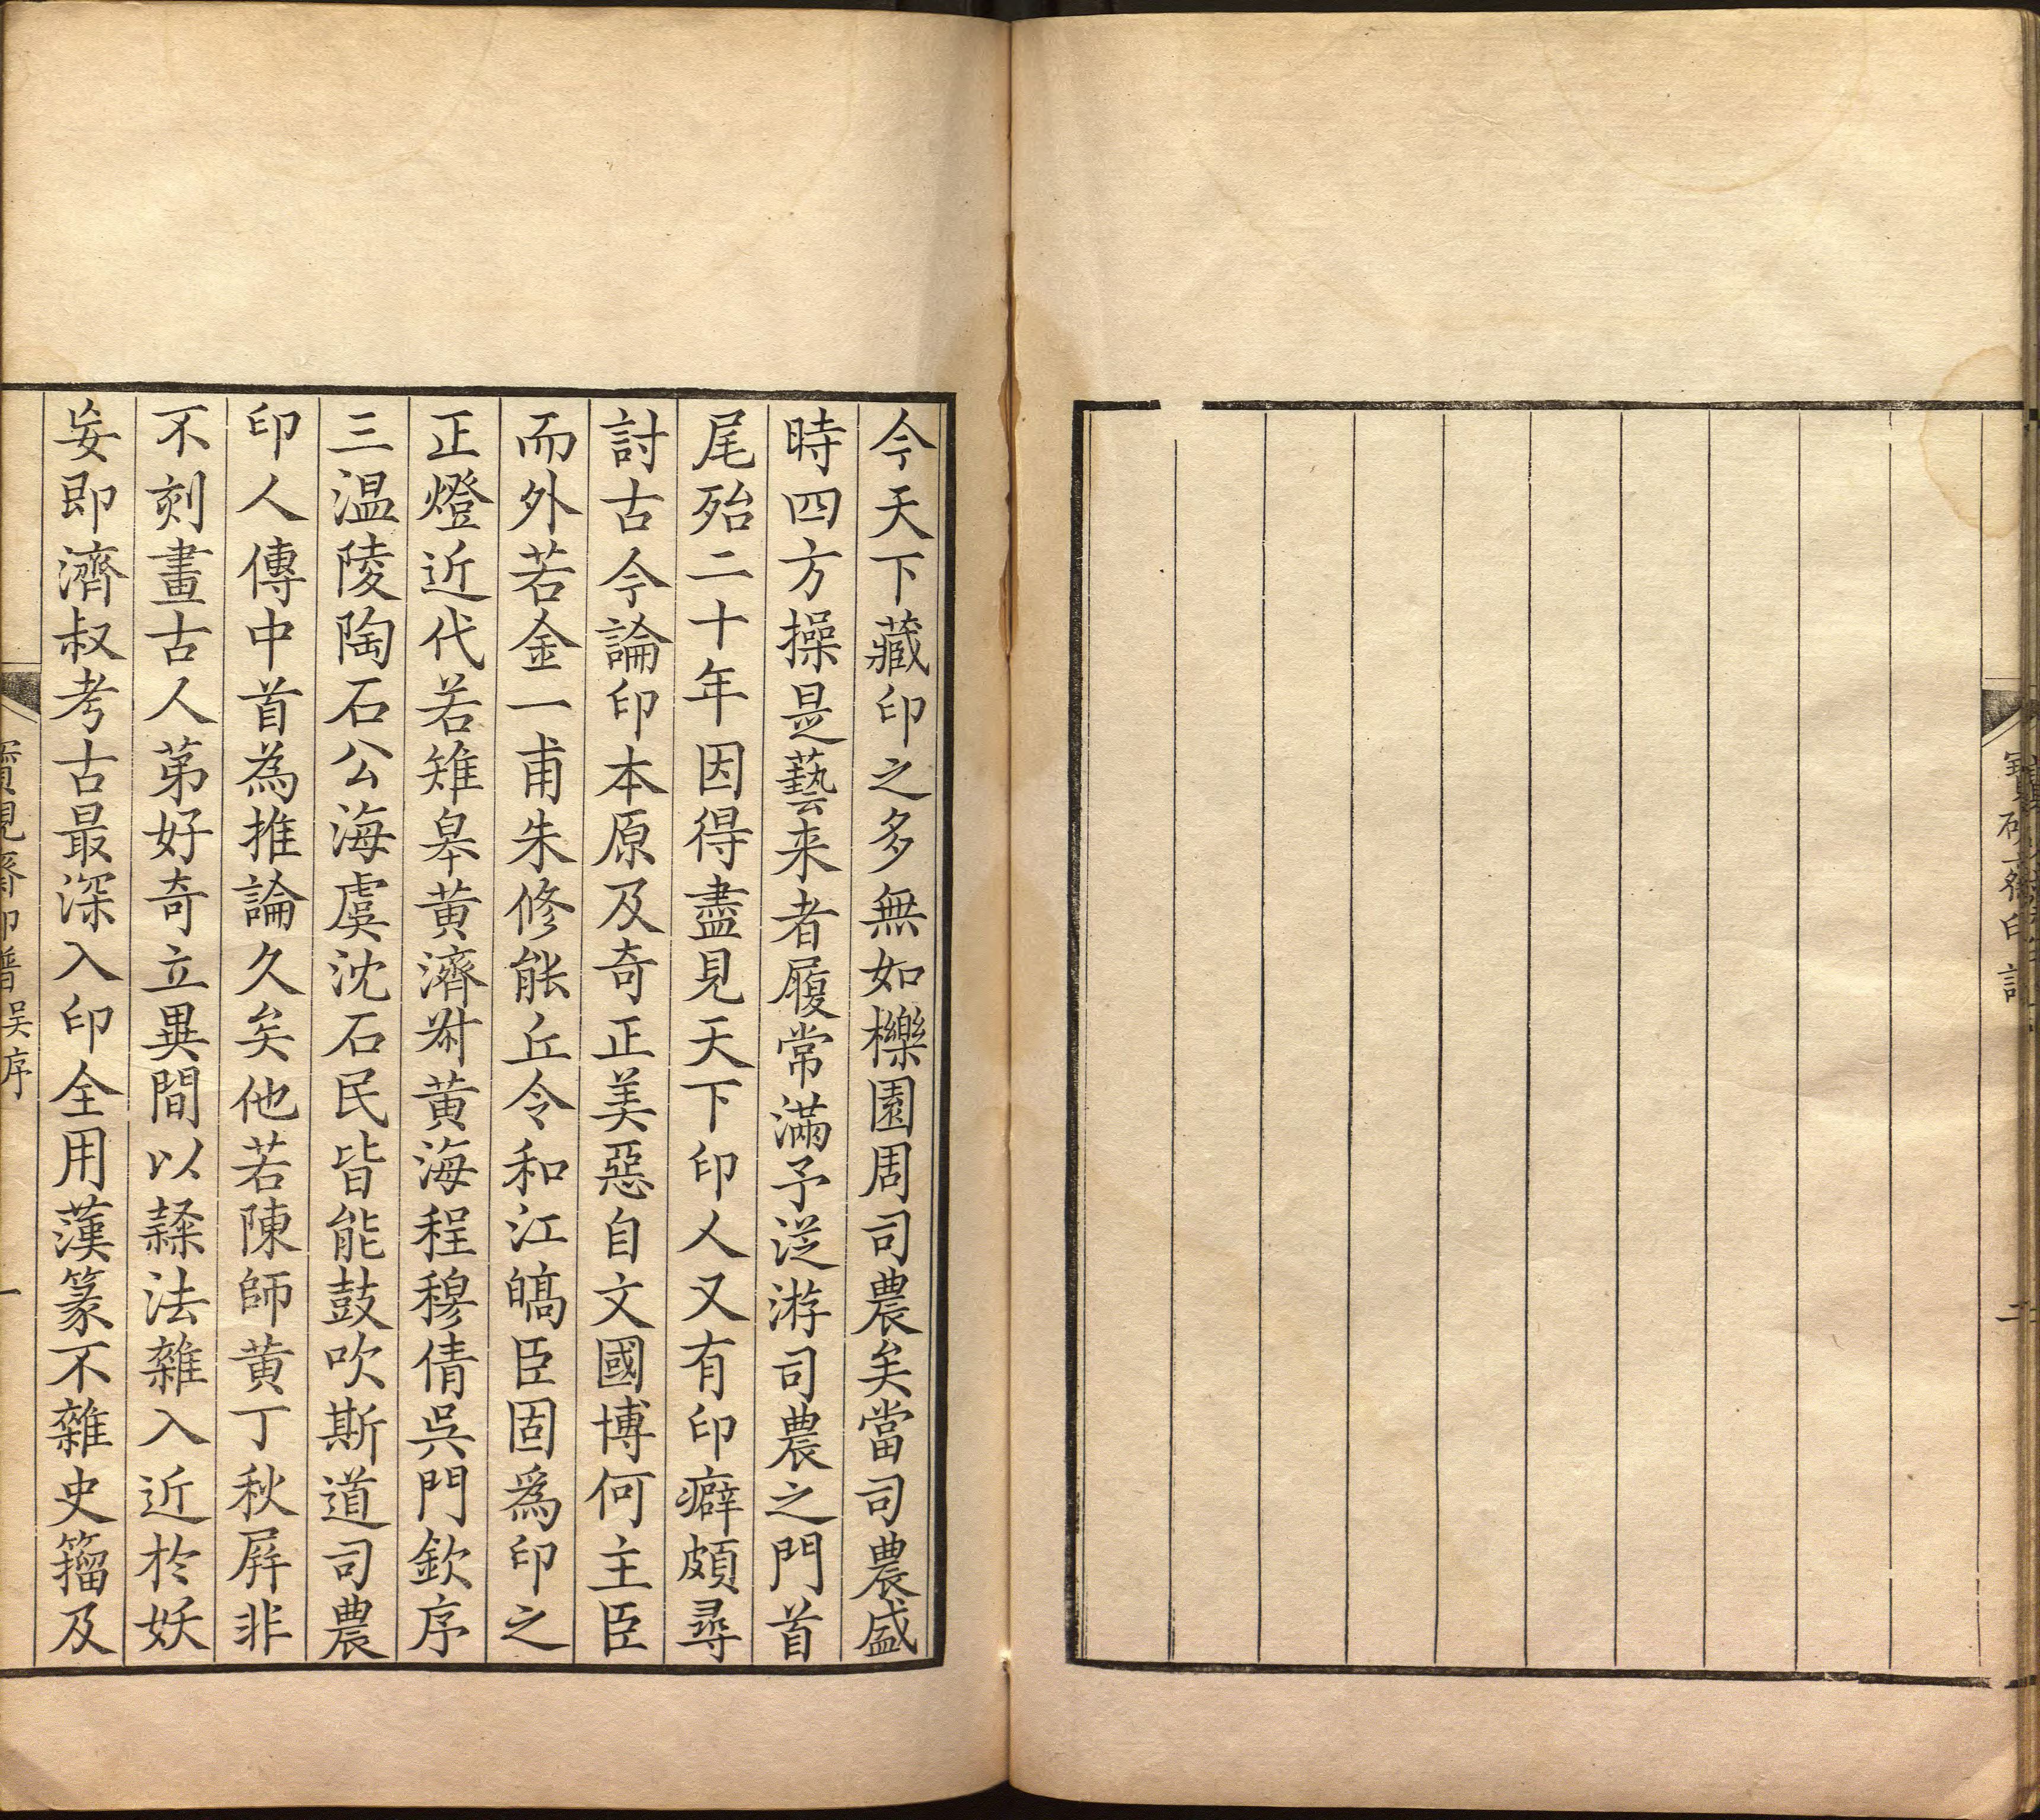 今天下藏印之多無如櫟園周司農矣當司農盛
時四方操是藝来者履常滿予淀游司農之門首
尾殆二十年因得盡見天下印人又有印癖頗尋
討古今論印本原及奇正美惡自文國博何主臣
而外若金一甫朱修能丘令和江皜臣固爲印之
正燈近代若雉皋黄濟叔黄海程穆倩吳門欽序
三温陵陶石公海虞沈石民皆能鼓吹斯道司農
印人傳中首為推論久矣他若陳師黄丁秋屏非
不刻畫古人苐好奇立異間以隸法雜入近於妖
妄即濟叔考古最深入印全用漢篆不雜史籀及
吴序
一
二